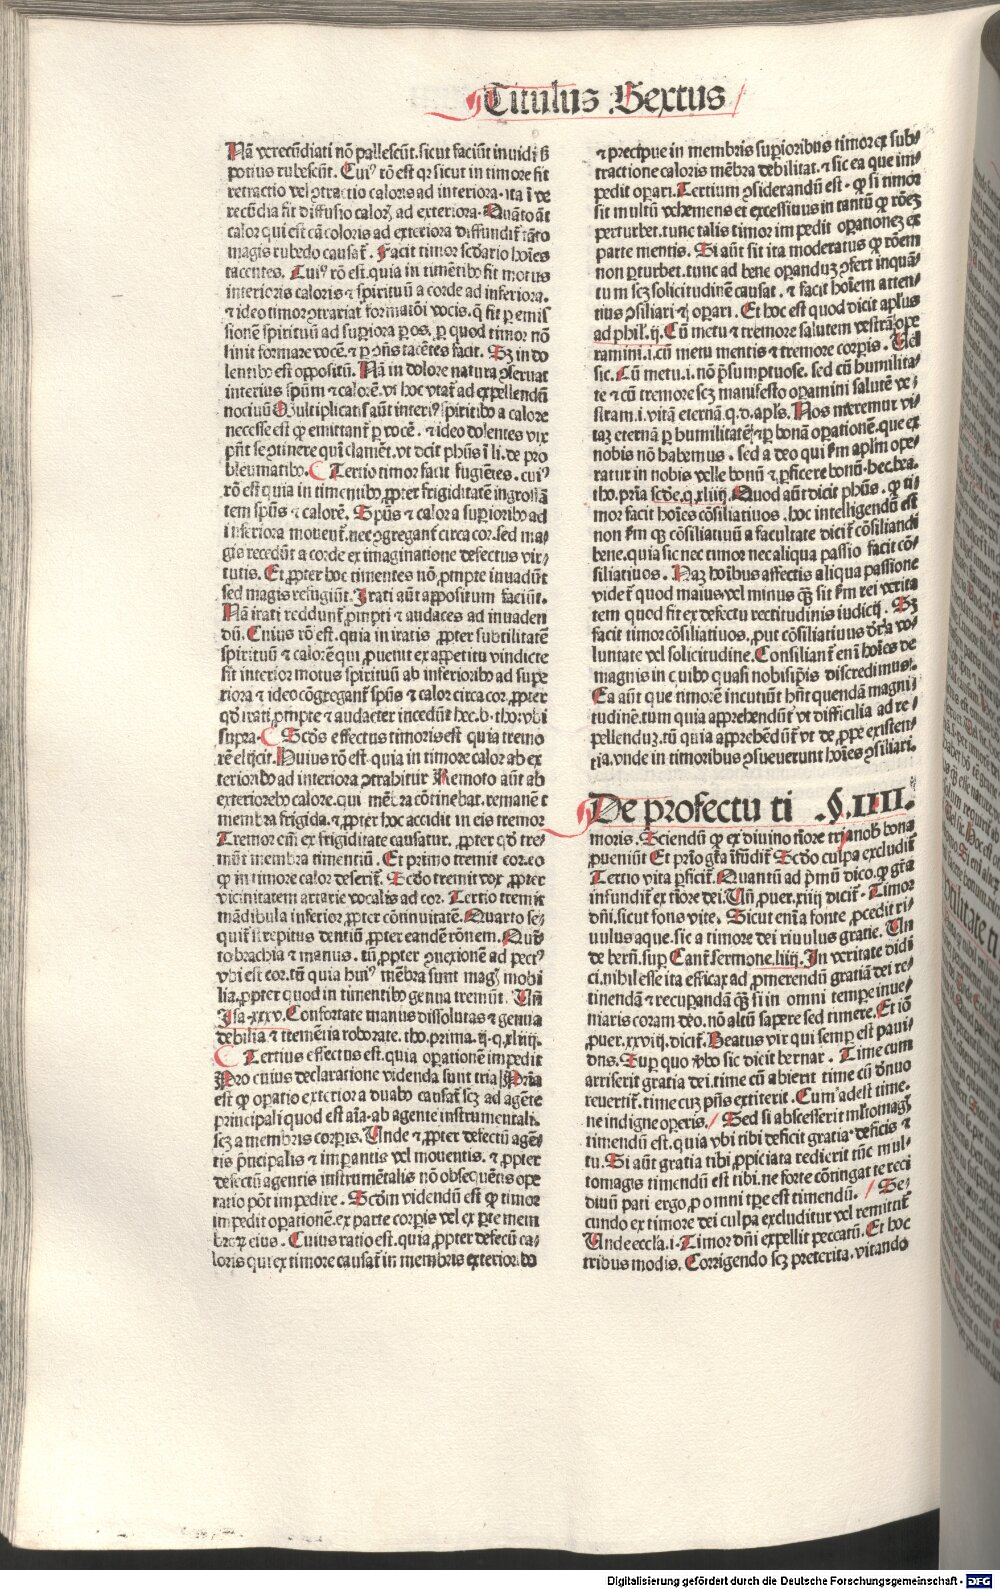 Titulus Sextus
Nã verecũdiati nõ pallescũt. sicut faciũt inuidi sꝫ
potius rubescũt. Cuiꝰ rõ est qꝛ sicut in timore fit
retractio vel ꝯtractio caloris ad interiora. ita ĩ ve
recũdia fit diffusio caloꝝ ad exteriora. Quãto aũt
calor qui est cã coloris ad exteriora diffundit̃ tãto
magis rubedo causat̃. Facit timor scd̃ario hoĩes
tacentes. Cuiꝰ rõ est. quia in timẽtibꝰ fit motus
interioris caloris ⁊ spirituũ a corde ad inferiora.
⁊ ideo timor ꝯtrariat̃ formatiõi vocis. q̃ fit ꝑ emis
sionẽ spirituũ ad suꝑiora ꝑ os. ꝑ quod timor nõ
sinit formare vocẽ. ⁊ ꝑ ꝯñs tacẽtes facit. Sꝫ in do
lentibꝰ est oppositũ. Nã in dolore natura ꝯseruat
interius spũm ⁊ calorẽ. vt hoc vtat̃ ad expellendũ
nociuũ Multiplicatis aũt interiꝰ spiritibꝰ a calore
necesse est ꝙ emittant̃ ꝑ vocẽ. ⁊ ideo dolentes vix
pñt se ꝯtinere quĩ clamẽt. vt dicit phũs ĩ li. de pro
bleumatibꝰ. Tertio timor facit fugiẽtes. cuiꝰ
rõ est quia in timentibꝰ ꝓpter frigiditatẽ ingrossã
tem spũs ⁊ calorẽ. Spũs ⁊ calor a suꝑioribꝰ ad
inferiora mouent̃. nec ꝯgregant̃ circa cor. sed ma
gis recedũt a corde ex imaginatione defectus vir
tutis. Et ꝓpter hoc timentes nõ ꝓmpte inuadũt
sed magis refugiũt. Irati aũt appositum faciũt.
Nã irati reddunt̃ ꝓmpti ⁊ audaces ad inuaden
dũ. Cuius rõ est. quia in iratis ꝓpter subtilitatẽ
spirituũ ⁊ calorẽ qui ꝓuenit ex appetitu vindicte
fit interior motus spirituũ ab inferioribꝰ ad supe
riora ⁊ ideo cõgregant̃ spũs ⁊ calor circa cor. ꝓpter
qd̃ irati ꝓmpte ⁊ audacter incedũt hec. b. tho. vbi
supra. Scd̃s effectus timoris est quia tremo
rẽ elijcit. Huius rõ est. quia in timore calor ab ex
terioribꝰ ad interiora ꝯtrahitur Remoto aũt ab
exterioribꝰ calore. qui mẽbra cõtinebat. remanẽt
membra frigida. ⁊ ꝓpter hoc accidit in eis tremor
Tremor em̃ ex frigiditate causatur. ꝓpter qd̃ tre
mũt membra timentiũ. Et primo tremit cor. eo
ꝙ in timore calor deserit̃. Scd̃o tremit vox ꝓpter
vicinitatem artarie vocalis ad cor. Tertio tremit
mãdibula inferior ꝓpter cõtinuitatẽ. Quarto se
quit̃ strepitus dentiũ ꝓpter eandẽ rõnem. Quin
to brachia ⁊ manus. tũ ꝓpter ꝯnexionẽ ad pectꝰ
vbi est cor. tũ quia huiꝰ mẽbra sunt magꝭ mobi
lia. ꝓpter quod in timentibꝰ genua tremũt. Vñ
Isa. xxxv. Confortate manus dissolutas ⁊ genua
debilia ⁊ tremẽtia roborate. tho. prima. ij. q. xliiij.
Tertius effectus est. quia oꝑationẽ impedit
Pro cuius declaratione videnda sunt tria Primũ
est ꝙ oꝑatio exterior a duabꝰ causat̃ scꝫ ad agẽte
principali quod est aĩa. ab agente instrumentali.
scꝫ a membris corꝑis. Unde ⁊ ꝓpter defectũ agẽ
tis pͥncipalis ⁊ imꝑantis vel mouentis. ⁊ ꝓpter
defectũ agentis instrumẽtalis nõ obsequẽtis ope
ratio põt impedire. Scd̃m videndũ est ꝙ timor
impedit oꝑationẽ. ex parte corꝑis vel ex ꝑte mem
broꝝ eius. Cuius ratio est. quia ꝓpter defectũ ca
loris qui ex timore causat̃ in membris exterioribꝰ
⁊ precipue in membris suꝑioribus timor ex sub
tractione caloris mẽbra debilitat. ⁊ sic ea que im
pedit oꝑari. Tertium ꝯsiderandũ est. ꝙ si timor
sit multũ vehemens et excessiuus in tantũ ꝙ rõeꝫ
perturbet. tunc talis timor impedit oꝑationeꝫ ex
parte mentis. Si aũt sit ita moderatus ꝙ rõem
non ꝑturbet. tunc ad bene oꝑanduꝫ ꝯfert inquã
tum scꝫ solicitudinẽ causat. ⁊ facit hoĩem atten
tius ꝯsiliari ⁊ oꝑari. Et hoc est quod dicit apl̃us
ad phil. ij. Cũ metu ⁊ tremore salutem vestrã ope
ramini. i. cũ metu mentis ⁊ tremore corꝑis. Vel
sic. Cũ metu. i. nõ p̃sumptuose. sed cũ humilita
te ⁊ cũ tremore scꝫ manifesto oꝑamini salutẽ ve
stram. i. vitã eternã. q. d. apl̃s. Nos meremur vi
taꝫ eternã ꝑ humilitatẽ ⁊ ꝑ bonã oꝑationẽ. que ex
nobis nõ habemus. sed a deo qui ẜm apl̃m ope
ratur in nobis velle bonũ ⁊ ꝑficere bonũ. hec. bea.
tho. pria scd̃e. q. xliiij. Quod aũt dicit phũs. ꝙ ti
mor facit hoĩes cõsiliatiuos. hoc intelligendũ est
non ẜm ꝙ cõsiliatiuũ a facultate dicit̃ cõsiliandi
bene. quia sic nec timor nec aliqua passio facit cõ
siliatiuos. Naꝫ hoĩbus affectis aliqua passione
videt̃ quod maius. vel minus qꝫ sit ẜm rei verita
tem quod fit ex defectu rectitudinis iudicij. Sꝫ
facit timor cõsiliatiuos. ꝓut cõsiliatiuus dr̃ a vo
luntate vel solicitudine. Consiliant̃ eni hoĩes de
magnis in quibꝰ quasi nobisipsis discredimus.
Ea aũt que timorẽ incutiũt hñt quendã magni
tudinẽ. tum quia apprehendũt̃ vt difficilia ad re
pellenduꝫ. tũ quia apprehẽdũt̃ vt de ꝓpe existen
tia. vnde in timoribus ꝯsueuerunt hoĩes ꝯsiliari.
De profectu ti .§. IIII.
moris. Sciendũ ꝙ ex diuino tiĩore tria nob̃ bona
ꝓueniũt Et prĩo gr̃a ĩfũdit̃ Scd̃o culpa excludit̃
Tertio vita ꝑficit̃. Quantũ ad p̃mũ dico. ꝙ gr̃a
infundit̃ ex tiĩore dei. Vñ ꝓuer. xiiij dicit̃. Timor
dñi. sicut fons vite. Sicut enĩ a fonte ꝓcedit ri
uulus aque. sic a timore dei riuulus gratie. Vñ
de berñ. sup Cant̃ sermone. liiij. In veritate didi
ci. nihil esse ita efficax ad ꝓmerendũ gratiã dei re
tinendã ⁊ recuperandã qꝫ si in omni tempe inue
niaris coram deo. nõ altũ sapere sed timere. Et iõ
ꝓuer. xxviij. dicit̃. Beatus vir qui semꝑ est paui
dus. Suꝑ quo ꝟbo sic dicit bernar. Time cum
arriserit gratia dei. time cũ abierit time cũ denuo
reuertit̃. time cuꝫ pñs extiterit. Cum adest time.
ne indigne oꝑeris. Sed si abscesserit mltomagꝭ
timendũ est. quia vbi tibi deficit gratia deficis ⁊
tu. Si aũt gratia tibi ꝓpiciata redierit tũc mul
tomagis timendũ est tibi. ne forte cõtingat te reci
diuũ pati ergo. pꝛo omni tpe est timendũ. Se
cundo ex timore dei culpa excluditur vel remittit̃
Unde eccla. i. Timor dñi expellit peccatũ. Et hoc
tribus modis. Corrigendo scꝫ preterita. vitando
Digitalisierung gefördert durch die Deutsche Forschungsgemeinschaft - DFG